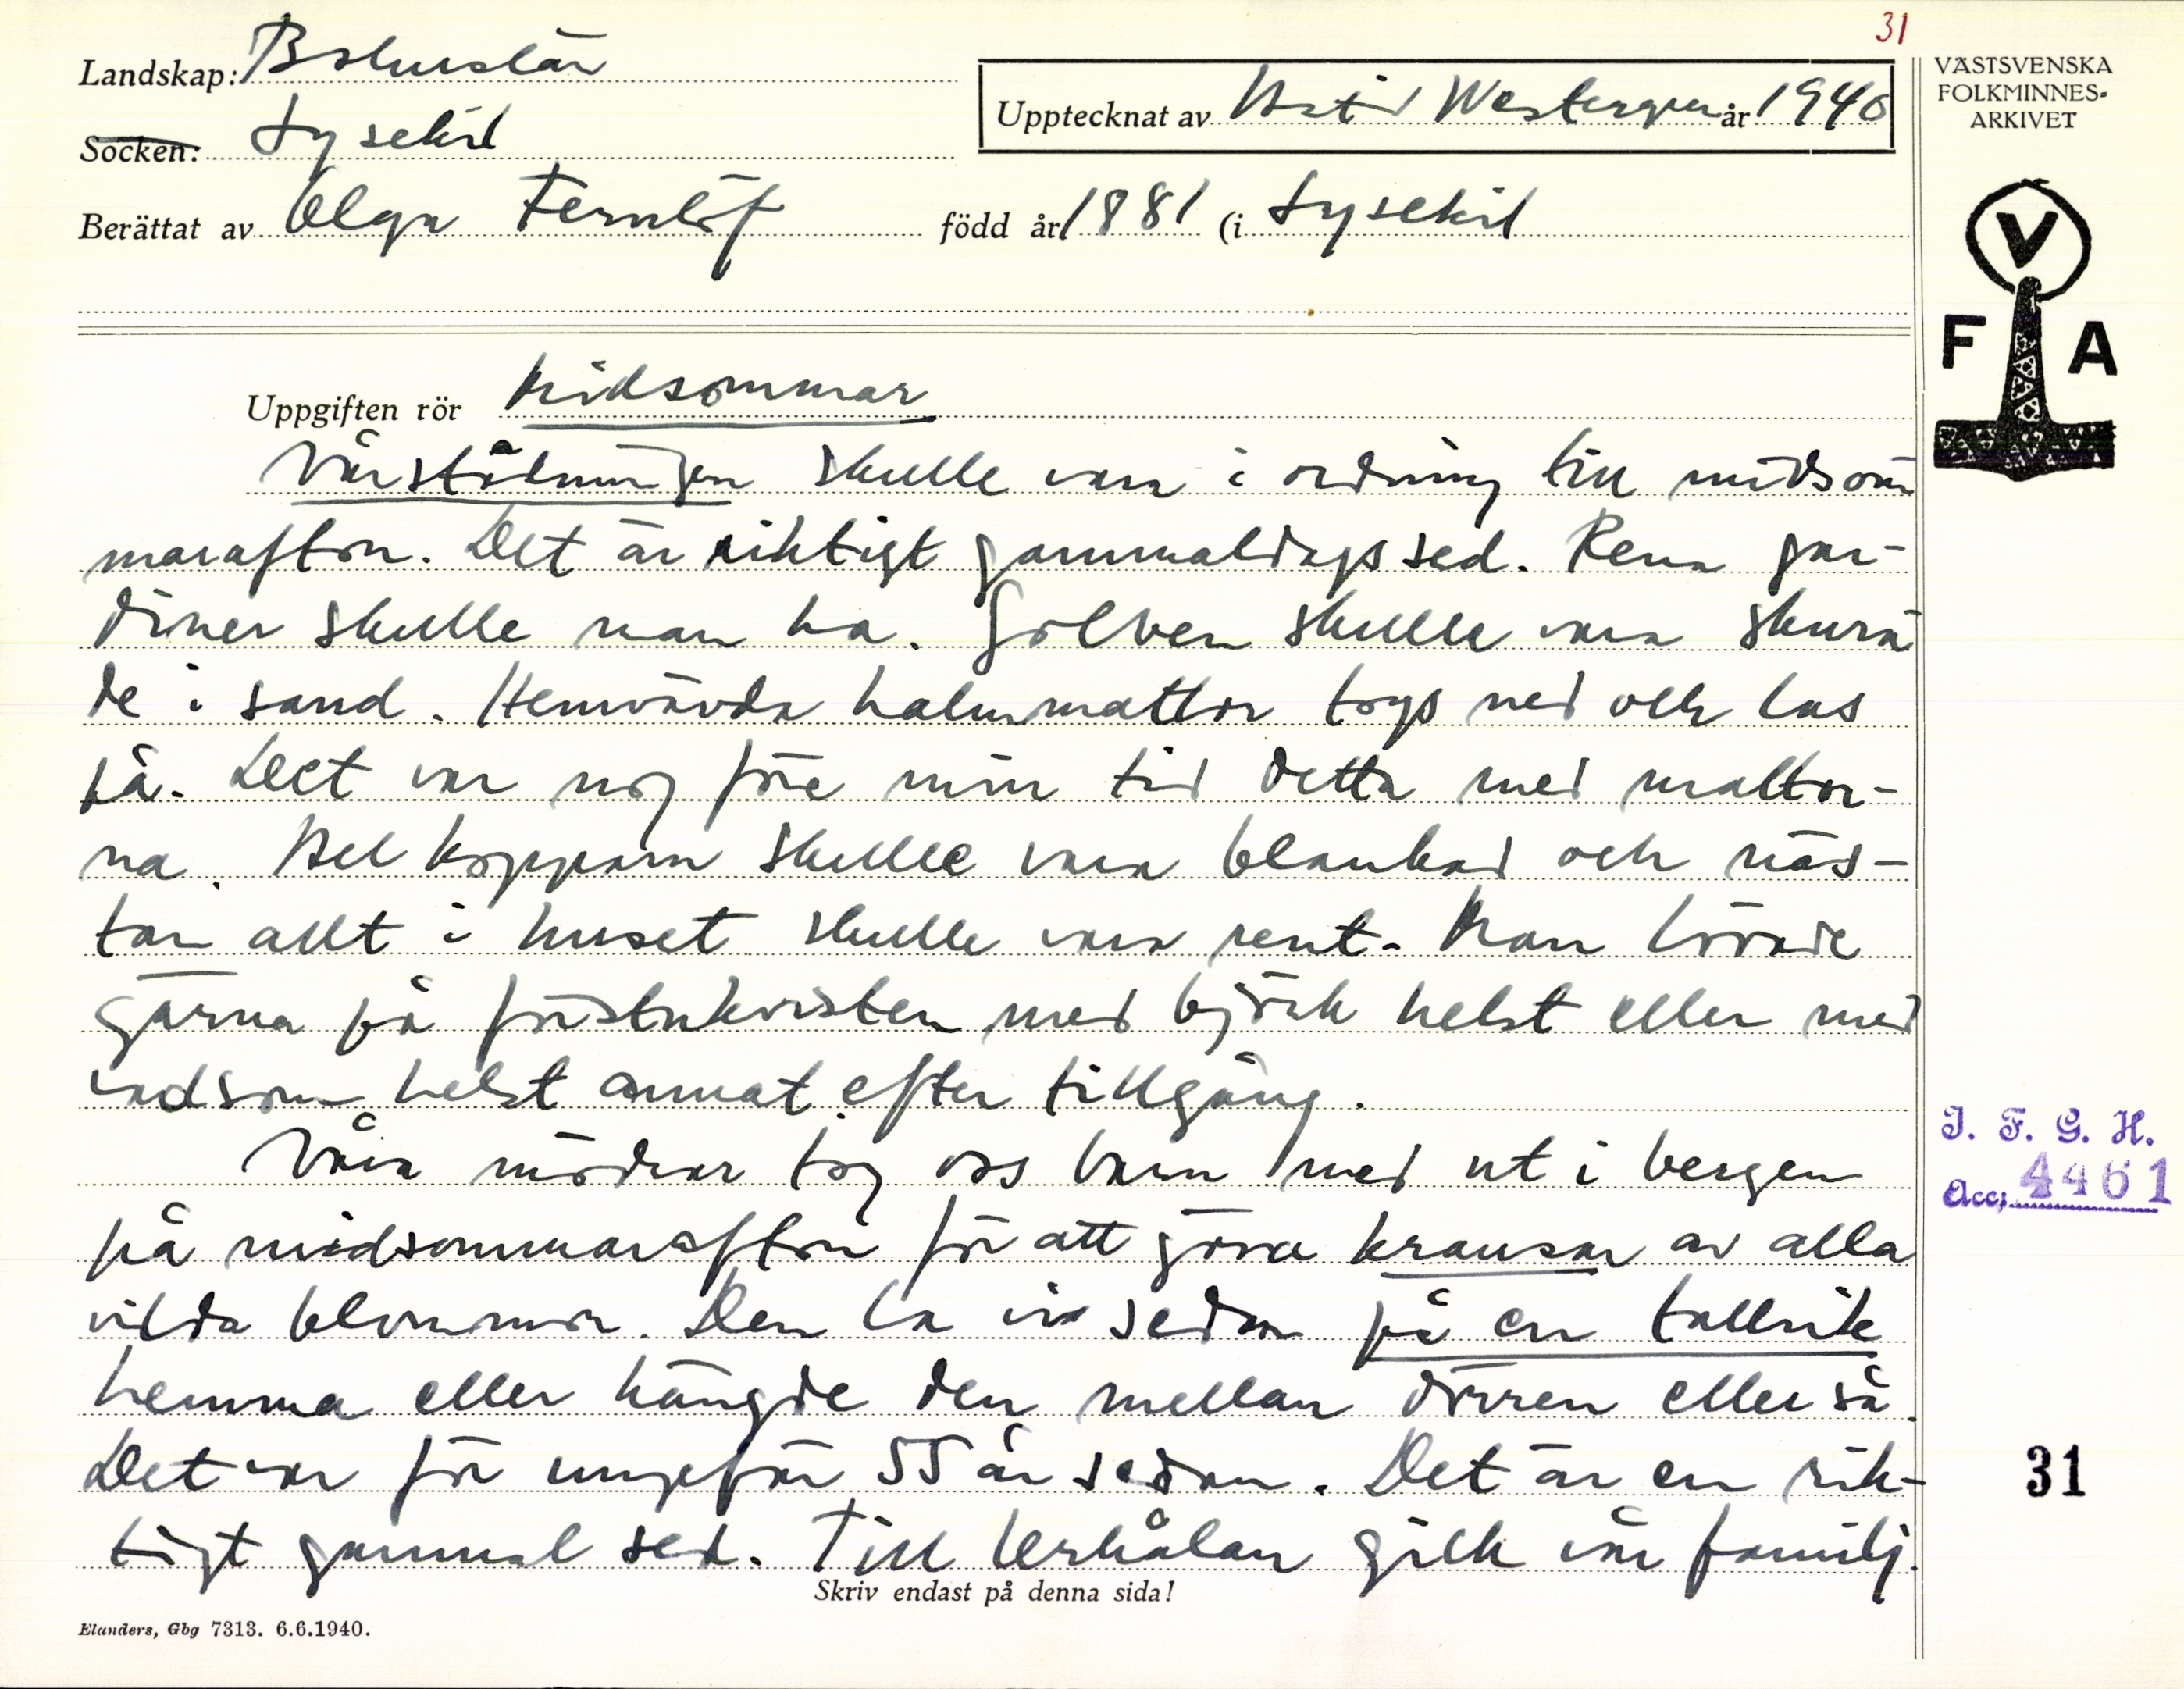 31
Landskap: Bohuslän
Socken: Lysekil
Upptecknat av Astrid Westergren år 1940
Berättat av Olga Fernlöf född år 1881 (i Lysekil
VÄSTSVENSKA
FOLKMINNES-
ARKIVET
V
F A
Uppgiften rör Midsommar
Vårstädningen skulle vara i ordning till midsom
maraftron. Det är riktigt gammaldags sed. Rena gar-
diner skulle man ha. Golven skulle vara skura
de i sand. Hemvävda halmmattor togs ned och las
på. Det var nog före min tid detta med mattor-
na. All kopparn skulle vara blankad och näs-
tan allt i huset skulle vara rent. Man lövade
gärna på förstukvisten med björk helst eller med
vadsom helst annat efter tillgång.
Våra mödrar tog oss barn med ut i bergen
på midsommarafton för att göra kransar av alla
vilda blommor. Den la vi sedan på en tallrik
hemma eller hängde den mellan dörren eller så.
Det var för ungefär 55 år sedan. Det är en rik-
tigt gammal sed. Till gick vår familj.
Skriv endast på denna sida!
Elanders, Gbg 7313. 6.6.1940.
I. F. G. H.
Acc; 4461
31